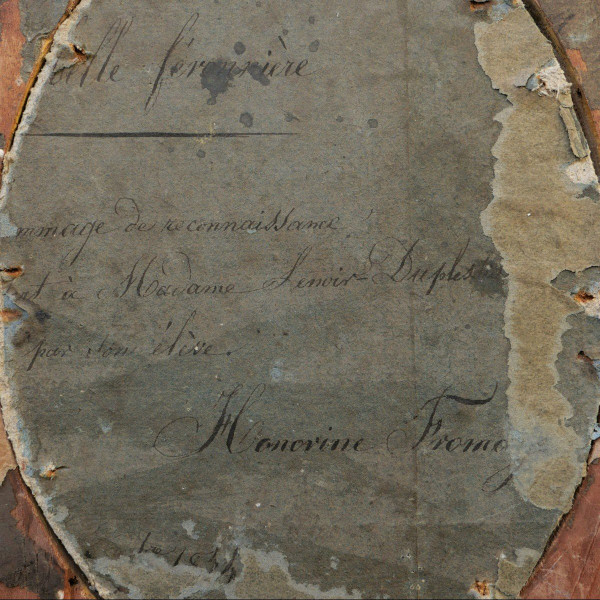 elle féronnière
mmage de reconnaissance
à Madame Lenoir-Duples
par son élève.
Honorine Fromo